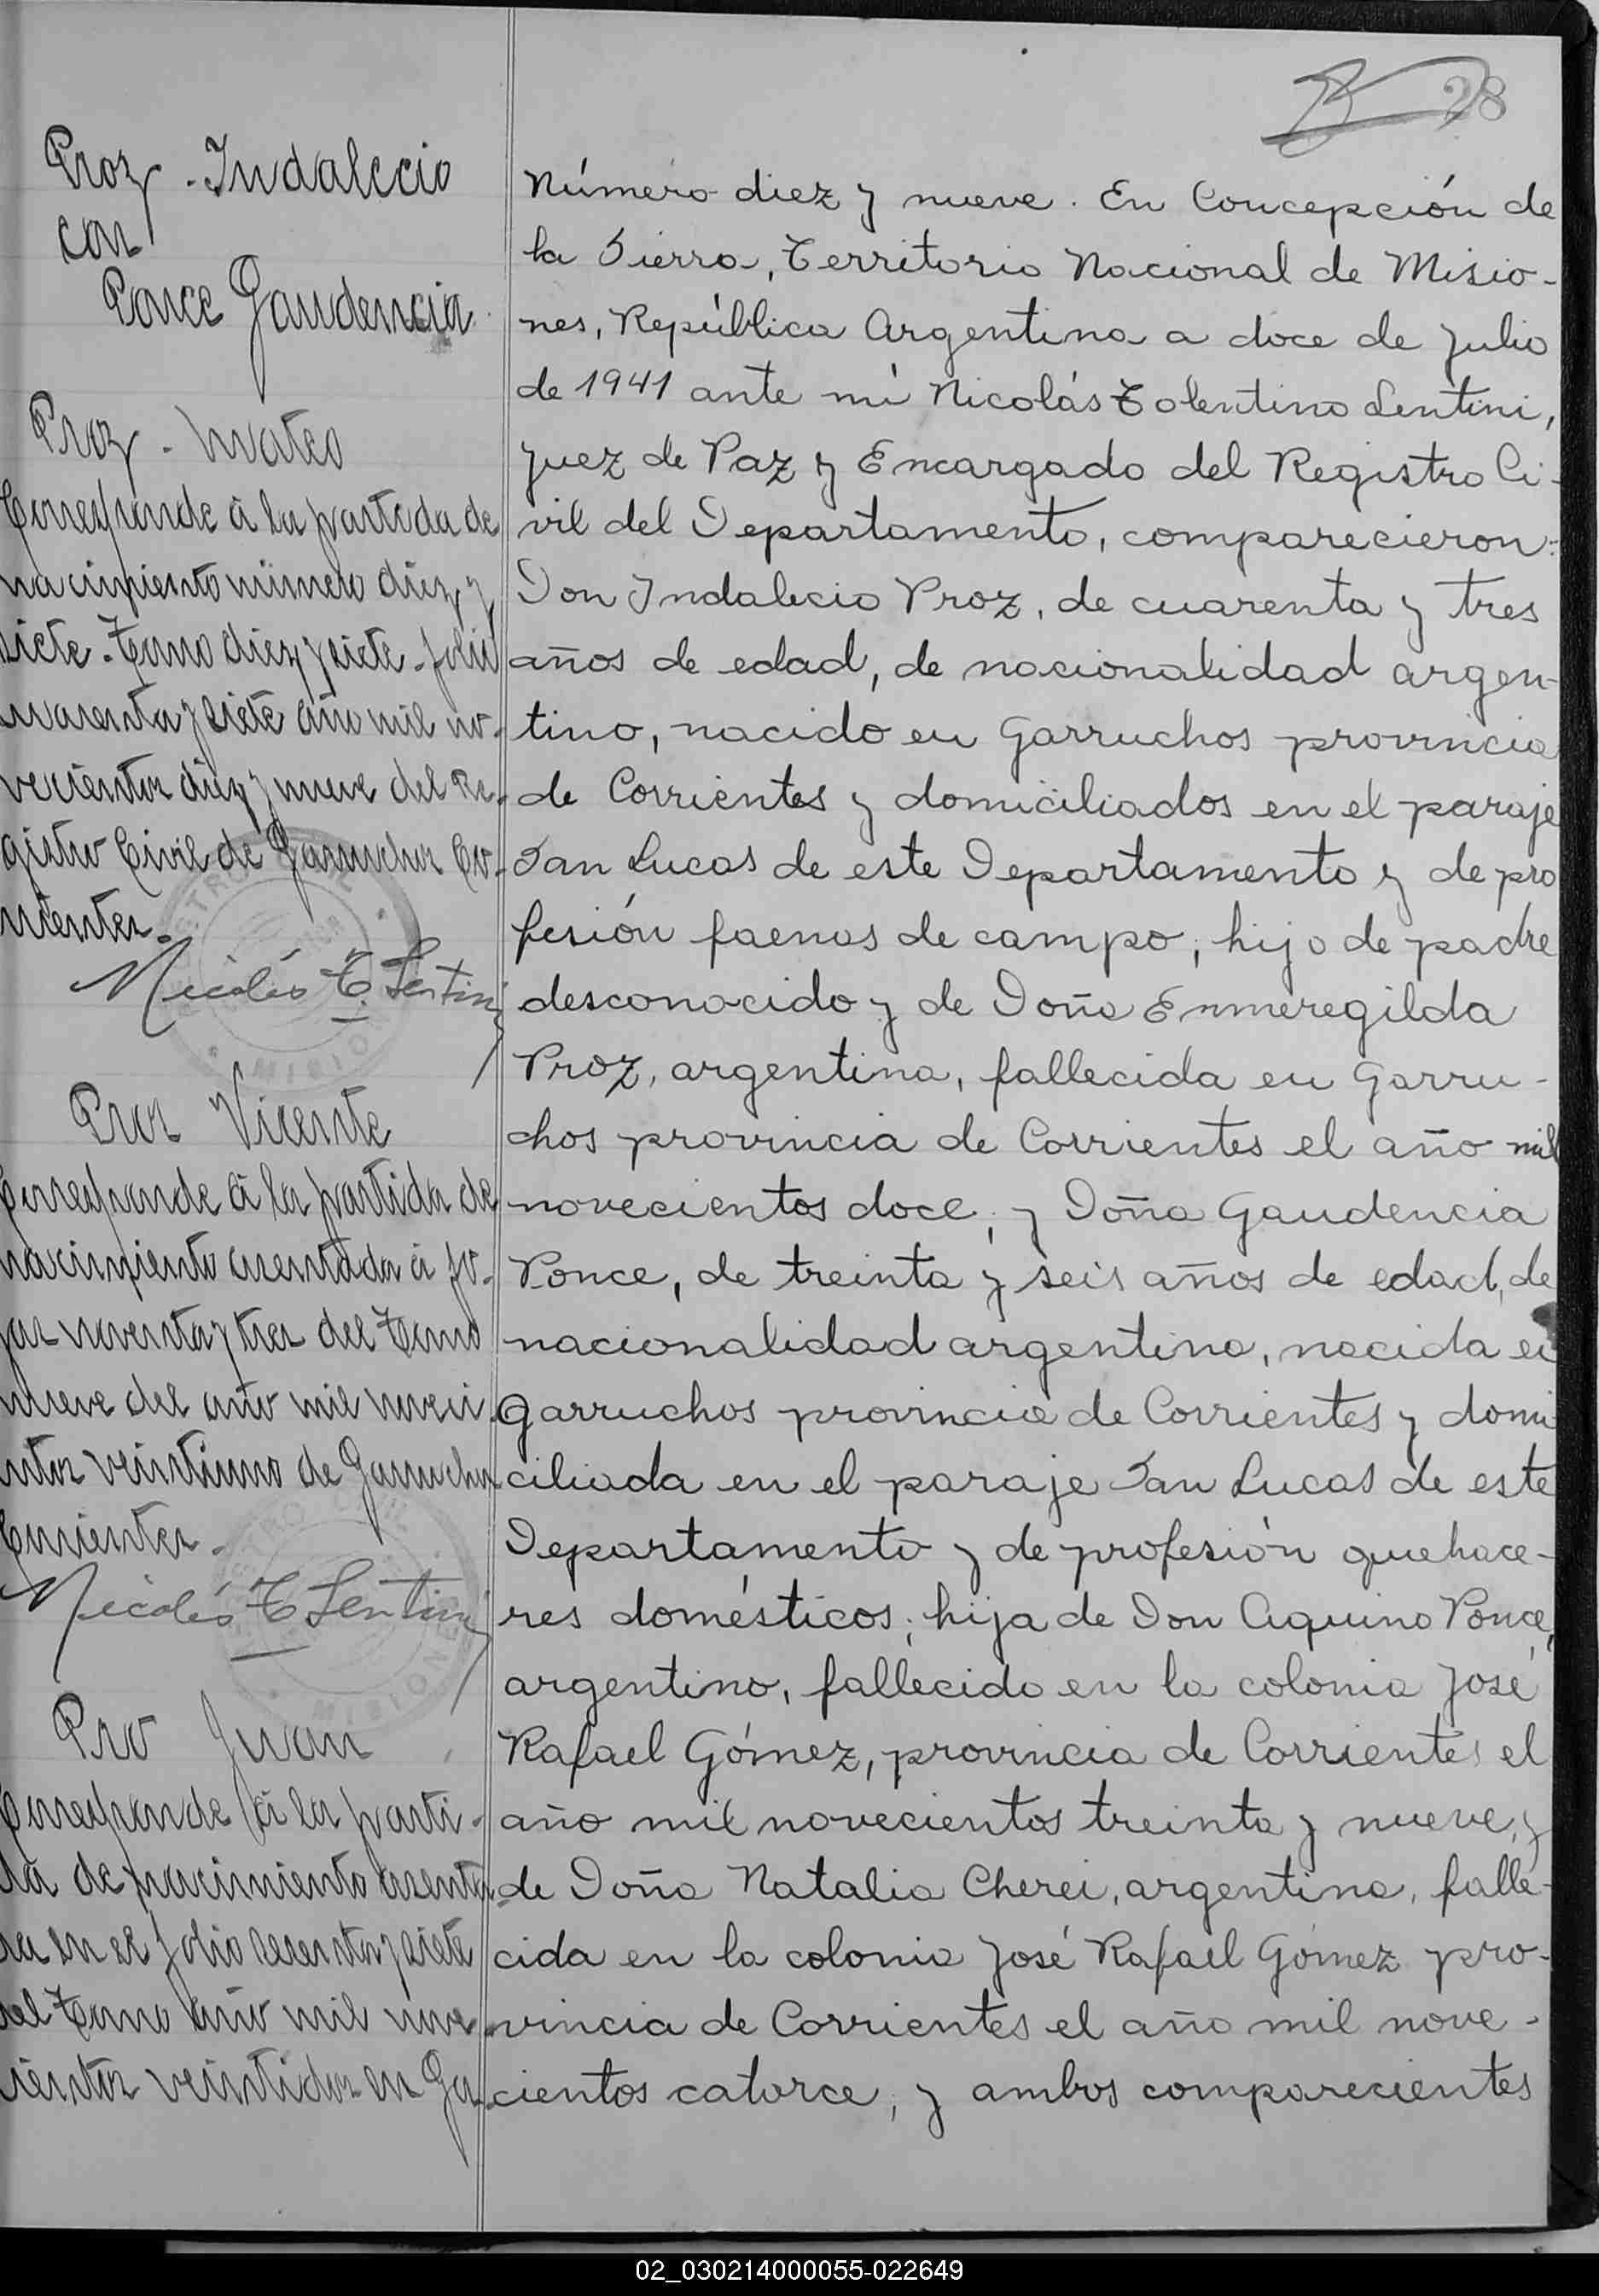 28
Proz - Indalecio
con
Ponce Gaudencia
Proz - Mateo
Corresponde á la partida de
nacimiento número diez y
siete - Tomo diez y siete - folio
cuarenta y siete año mil no-
vecientos diez y nueve del Re-
gistro Civil de Garruchos Co-
rrientes.
Nicolás T. Lentini
Proz Vicente
Corresponde á la partida de
nacimiento asentada á fo-
jas noventa y tres del Tomo
nueve del año mil noveci-
entos veintiuno de Garruchos
Corrientes.
Nicolás T Lentini
Pro Juan
Corresponde á la parti-
da de nacimiento asenta-
da en el folio sesenta y siete
del Tomo año mil nove-
cientos veintidos en Ga-
Número diez y nueve. En Concepción de
la Sierra, Territorio Nacional de Misio-
nes, República Argentina a doce de julio
de 1941 ante mí Nicolás Tolentino Lentini,
juez de Paz y Encargado del Registro Ci-
vil del Departamento, comparecieron:
Don Indalecio Proz, de cuarenta y tres
años de edad, de nacionalidad argen-
tino, nacido en Garruchos provincia
de Corrientes y domiciliados en el paraje
San Lucas de este Departamento y de pro
fesión faenas de campo, hijo de padre
desconocido y de Doña Enmeregilda
Proz, argentina, fallecida en Garru-
chos provincia de Corrientes el año mil
novecientos doce, y Doña Gaudencia
Ponce, de treinta y seis años de edad, de
nacionalidad argentina, nacida en
Garruchos provincia de Corrientes y domi
ciliada en el paraje San Lucas de este
Departamento y de profesión quehace-
res domésticos; hija de Don Aquino Ponce,
argentino, fallecido en la colonia José
Rafael Gómez, provincia de Corrientes el
año mil novecientos treinta y nueve, y
de Doña Natalia Cherei, argentina, falle-
cida en la colonia José Rafael Gómez pro-
vincia de Corrientes el año mil nove-
cientos catorce, y ambos comparecientes
02_030214000055-022649